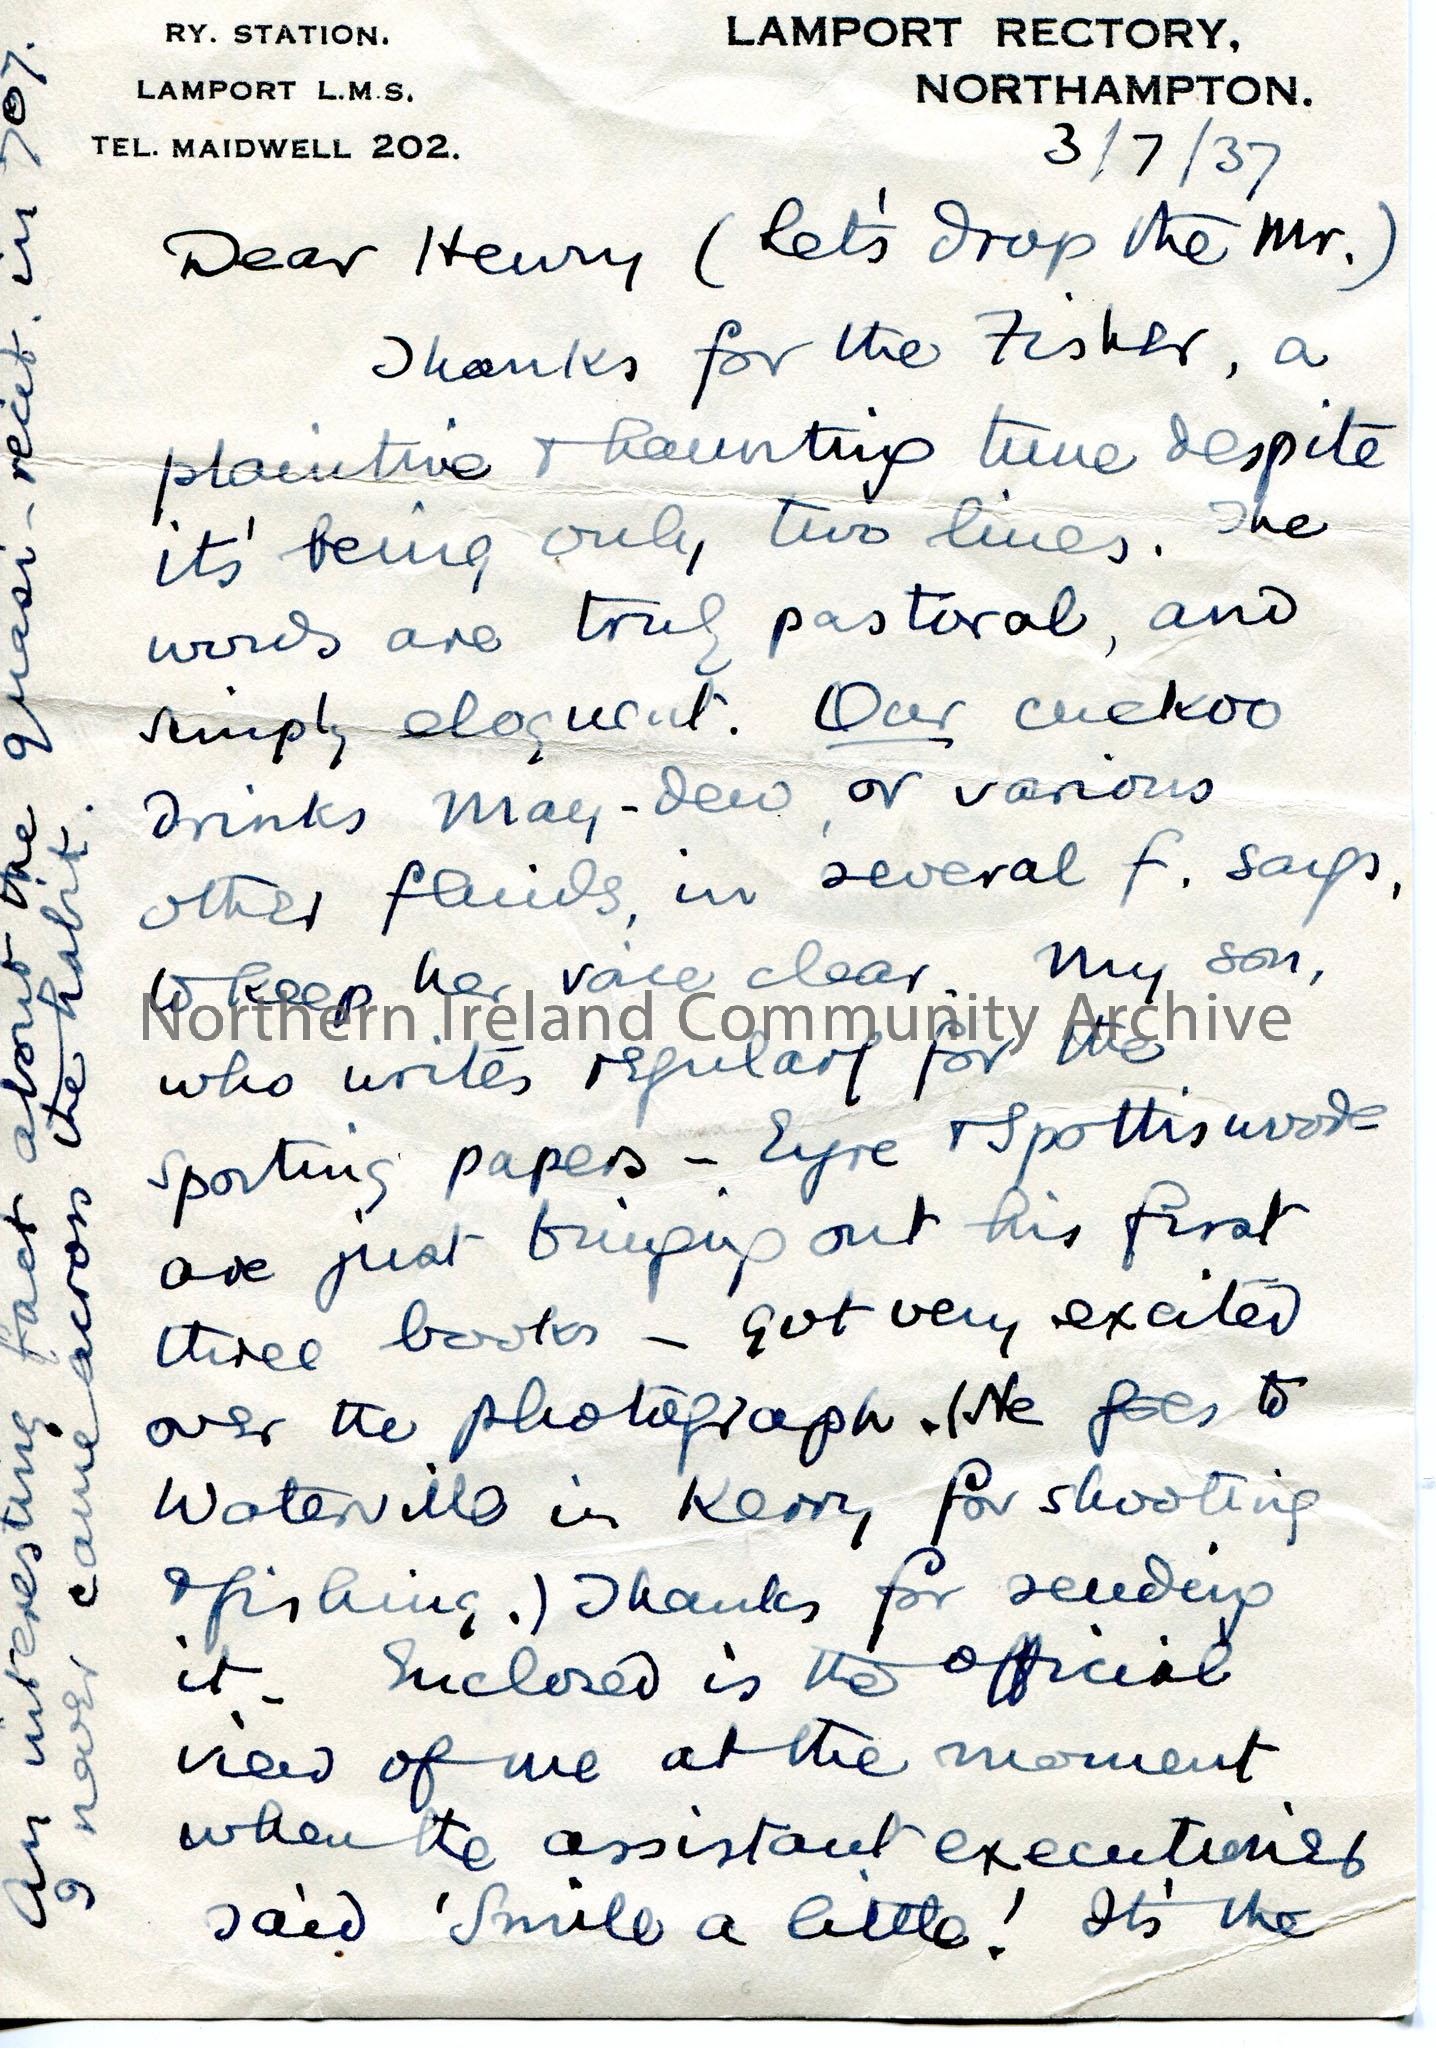 RY. STATION.
LAMPORT L.M.S.
TEL. MAIDWELL 202.
LAMPORT RECTORY,
NORTHAMPTON.
3/7/37
Dear Henry (Let's drop the Mr.)
Thanks for the Fisher, a
plaintive & haunting tune despite
its' being only two lines. The
words are truly pastoral, and
simply eloquent. Our cuckoo
drinks May-dew, or various
other fluids, in several f. songs,
to keep her voice clear. My son,
who writes regularly for the
sporting papers – Eyre & Spottiswoode
are just bringing out his first
three books – got very excited
over the photograph. (He goes to
Waterville in Kerry for shooting
& fishing.) Thanks for sending
it – Enclosed is the official
view of me at the moment
when the assistant executioner
said 'Smile a little! It's the
An interesting fact about the quasi-recit. in 707.
I never came across the habit.
Northern Ireland Community Archive